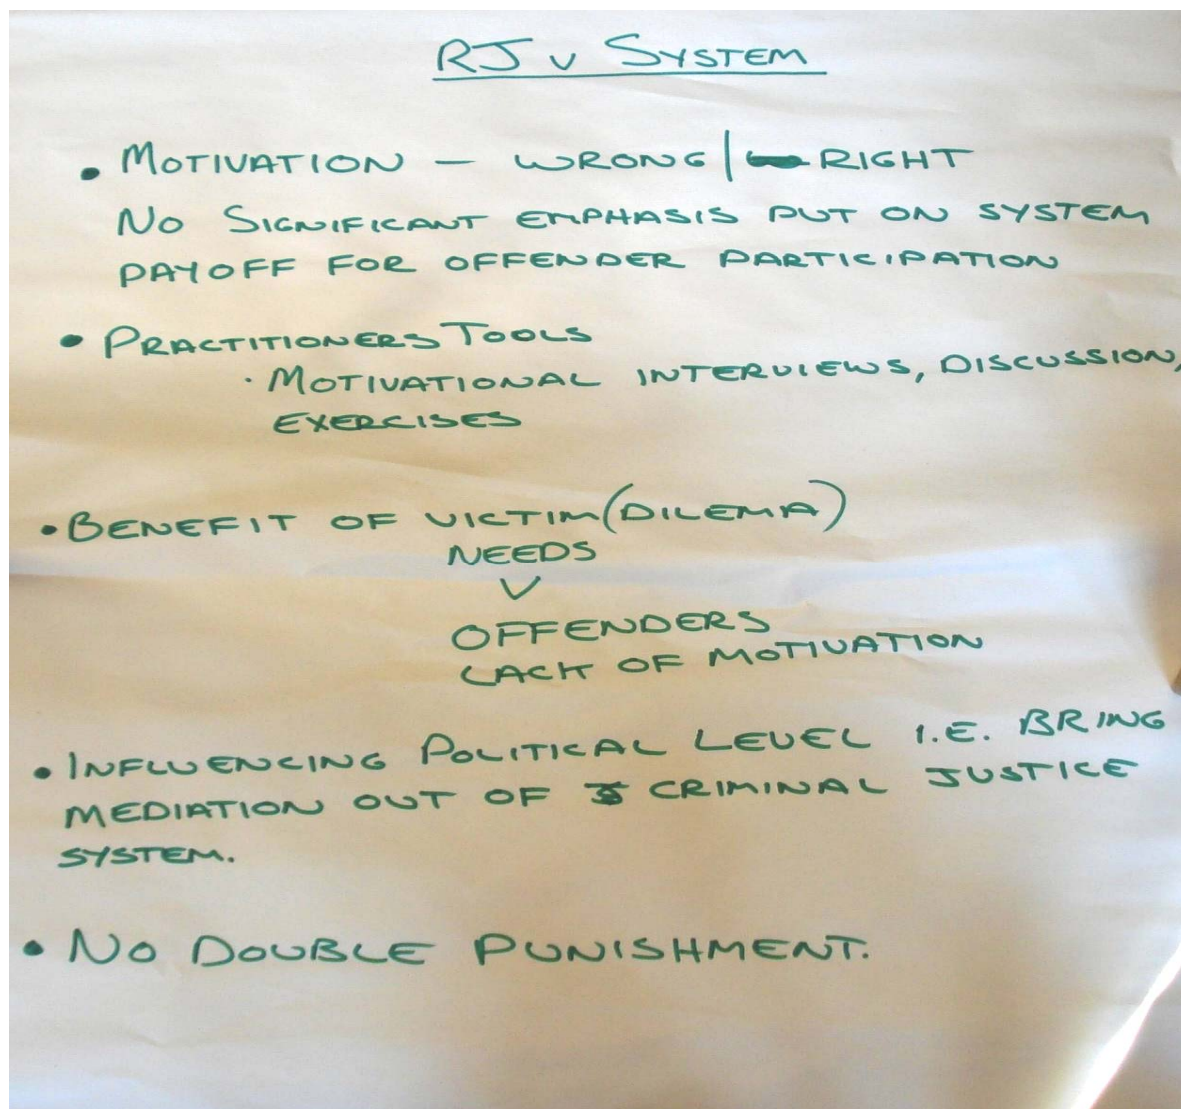 RJ v SYSTEM
• MOTIVATION – WRONG | RIGHT
NO SIGNIFICANT EMPHASIS PUT ON SYSTEM
PAYOFF FOR OFFENDER PARTICIPATION
• PRACTITIONERS TOOLS
· MOTIVATIONAL INTERVIEWS, DISCUSSION,
EXERCISES
• BENEFIT OF VICTIM (DILEMA)
NEEDS
V
OFFENDERS
LACK OF MOTIVATION
• INFLUENCING POLITICAL LEVEL I.E. BRING
MEDIATION OUT OF CRIMINAL JUSTICE
SYSTEM.
• NO DOUBLE PUNISHMENT.